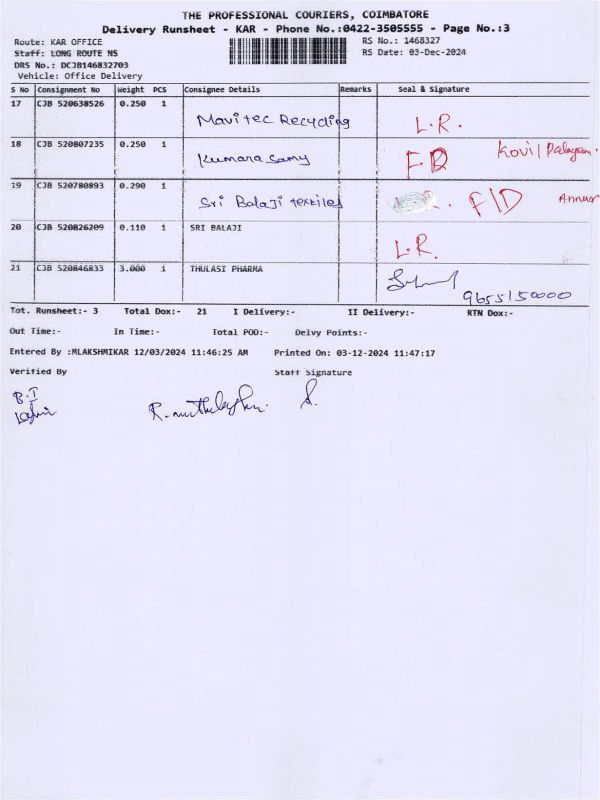 THE PROFESSIONAL COURIERS, COIMBATORE
Delivery Runsheet - KAR - Phone No.:0422-3505555 - Page No.:3
Route: KAR OFFICE RS No.: 1468327
Staff: LONG ROUTE NS RS Date: 03-Dec-2024
DRS No.: DCJB146832703
Vehicle: Office Delivery
S No Consignment No Weight PCS Consignee Details Remarks Seal & Signature
17 CJB 520638526 0.250 1
Mavitec Recycling L.R.
18 CJB 520807235 0.250 1
Kumara samy F.D Kovil Palayam.
19 CJB 520780893 0.290 1
Sri Balaji textiles F/D Annur
20 CJB 520826209 0.110 1 SRI BALAJI
L.R.
21 CJB 520846833 3.000 1 THULASI PHARMA
9655150000
Tot. Runsheet:- 3 Total Dox:- 21 I Delivery:- II Delivery:- RTN Dox:-
Out Time:- In Time:- Total POD:- Delvy Points:-
Entered By :MLAKSHMIKAR 12/03/2024 11:46:25 AM Printed On: 03-12-2024 11:47:17
Verified By Staff Signature
B.I